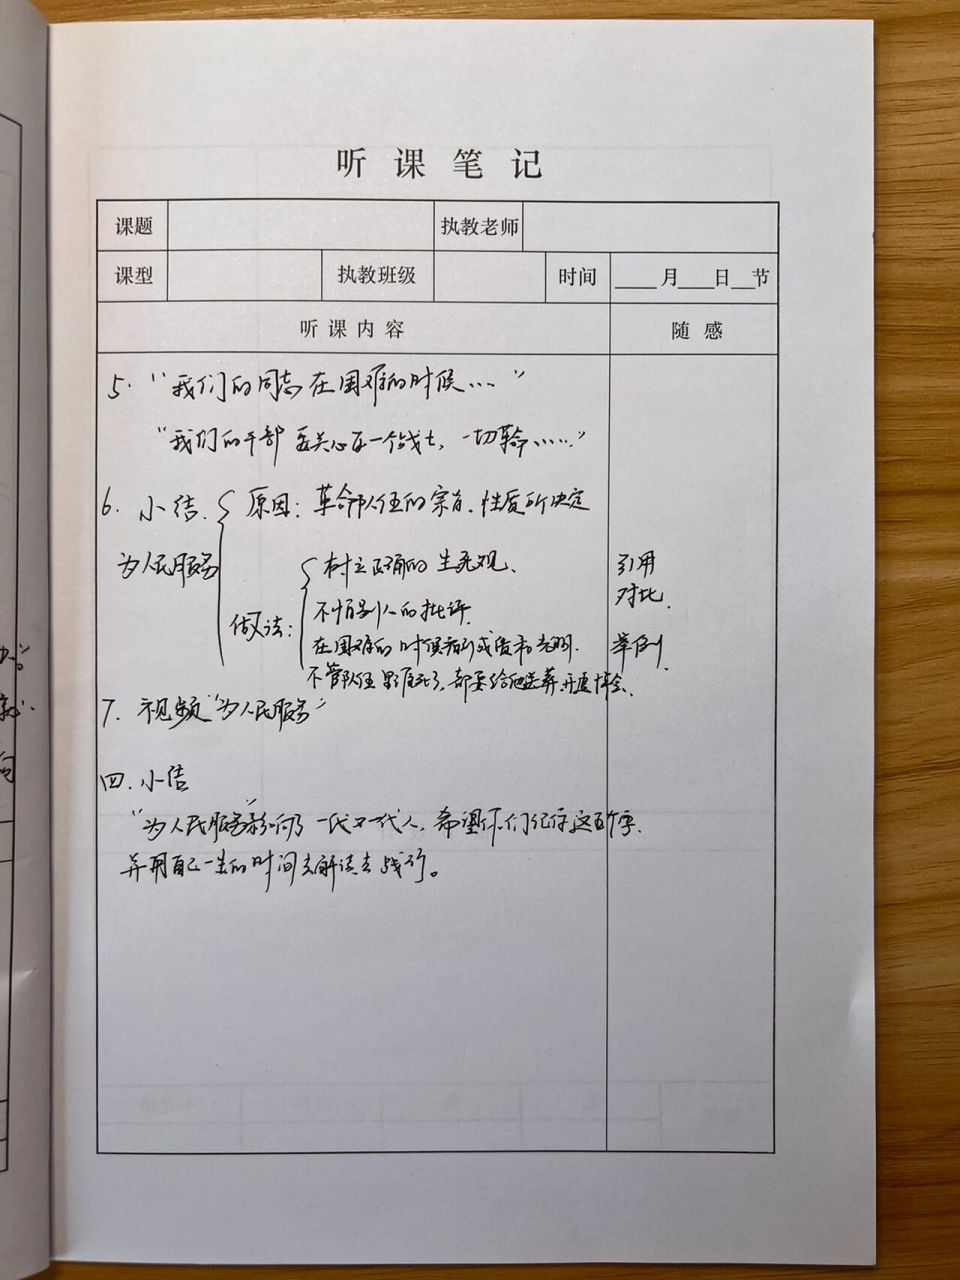 听课笔记
课题 执教老师
课型 执教班级 时间 ____月____日__节
听课内容 随感
5. “我们的同志在困难的时候……”
“我们的干部要关心每一个战士，一切革命……”
6. 小结 原因：革命队伍的宗旨、性质所决定
为人民服务
做法：
树立正确的生死观、
不怕别人的批评
在困难的时候看到成绩和光明.
不管队伍里谁死了，都要给他送葬、开追悼会.
引用
对比.
举例.
7. 视频“为人民服务”
四.小结
“为人民服务”影响了一代又一代人，希望你们记住这五个字.
并用自己一生的时间去解读去践行。